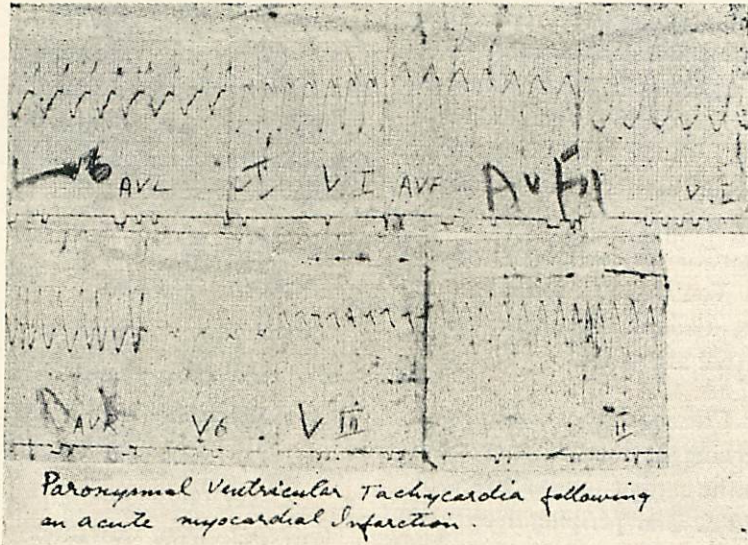 AVL V I AVF AVF V.I
AVR V6 V III II
Paroxysmal Ventricular Tachycardia following
an acute myocardial Infarction.